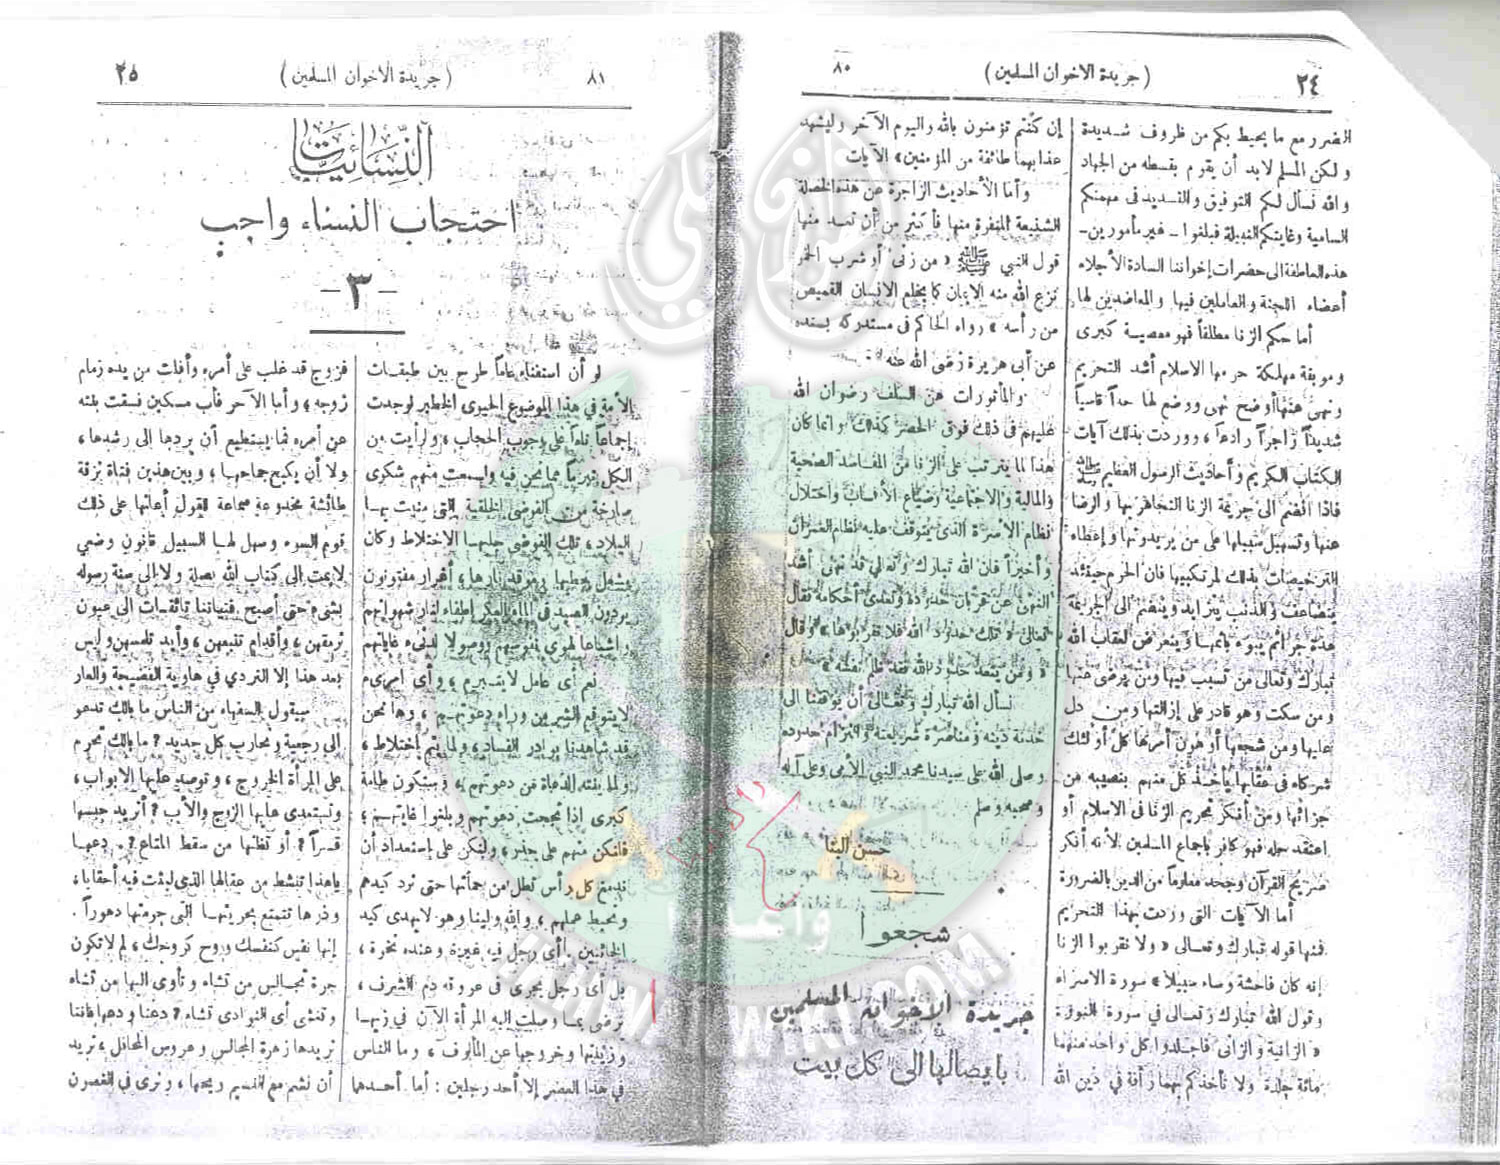 ٢٤
( جريدة الاخوان المسلمين )
٨٠
الضرر مع ما يحيط بكم من ظروف شديدة
ولكن المسلم لابد أن يقوم بقسطه من الجهاد
والله نسأل لكم التوفيق والتسديد فى مهمتكم
السامية وغايتكم النبيلة فبلغوا - غير مأمورين -
هذه العاطفة الى حضرات إخواننا السادة الأجلاء
أعضاء اللجنة والعاملين فيها والمعاضدين لها
أما حكم الزنا مطلقاً فهو معصية كبرى
وموبقة مهلكة حرمها الاسلام أشد التحريم
ونهى عنها أوضح نهى ووضع لها حداً قاسياً
شديداً زاجراً رادعاً ، ووردت بذلك آيات
الكتاب الكريم وأحاديث الرسول العظيم ﷺ
فاذا انضم الى جريمة الزنا التجاهر بها والرضا
عنها وتسهيل سبيلها على من يريدونها وإعطاء
الترخيصات بذلك لمرتكبيها فان الجرم حينئذ
يتضاعف والذنب يتزايد وينضم الى الجريمة
هذه جرائم يبوء بإثمها ويتعرض لعقاب الله
تبارك وتعالى من تسبب فيها ومن يرضى عنها
ومن سكت وهو قادر على إزالتها ومن دل
عليها ومن شجعها أو هون أمرها كل أولئك
شركاء فى عقابها يأخذ كل منهم بنصيبه من
جزائها ومن أنكر تحريم الزنا فى الاسلام أو
اعتقد حله فهو كافر باجماع المسلمين لأنه أنكر
صريح القرآن وجحد معلوماً من الدين بالضرورة
أما الآيات التى وردت بهذا التحريم
فمنها قوله تبارك وتعالى « ولا تقربوا الزنا
إنه كان فاحشة وساء سبيلا » سورة الاسراء
وقول الله تبارك وتعالى في سورة النور
« الزانية والزانى فاجلدوا كل واحد منهما
مائة جلدة ولا تأخذكم بهما رأفة في دين الله
إن كنتم تؤمنون بالله واليوم الآخر وليشهد
عذابهما طائفة من المؤمنين » الآيات
وأما الأحاديث الزاجرة عن هذه الخصلة
الشنيعة المنفرة منها فأكثر من أن تعد منها
قول النبي ﷺ « من زنى أو شرب الخمر
نزع الله منه الايمان كما يخلع الانسان القميص
من رأسه » رواه الحاكم فى مستدركه بسنده
عن أبى هريرة رضى الله عنه
والمأثورات عن السلف رضوان الله
عليهم فى ذلك فوق الحصر كذلك وانما كان
هذا لما يترتب على الزنا من المفاسد الصحية
والمالية والاجتماعية وضياع الأنساب واختلال
نظام الأسرة الذى يتوقف عليه نظام العمران
وأخيراً فان الله تبارك وتعالى قد نهى أشد
النهى عن قربان حدوده وتعدى أحكامه فقال
تعالى « تلك حدود الله فلا تقربوها » وقال
« ومن يتعد حدود الله فقد ظلم نفسه »
نسأل الله تبارك وتعالى أن يوفقنا الى
خدمة دينه ومناصرة شريعته والتزام حدوده
وصلى الله على سيدنا محمد النبي الأمى وعلى آله
وصحبه وسلم
حسن البنا
شجعوا
جريدة الاخوان المسلمين
بايصالها الى كل بيت
٨١
( جريدة الاخوان المسلمين )
٢٥
النسائيات
احتجاب النساء واجب
-٣-
لو أن استفتاء عاماً طرح بين طبقات
الأمة في هذا الموضوع الحيوى الخطير لوجدت
إجماعاً تاماً على وجوب الحجاب ، ولرأيت من
الكل تبرماً مما نحن فيه ولسمعت منهم شكوى
صارخة من الفوضى الخلقية التى منيت بها
البلاد ، تلك الفوضى جلبها الاختلاط وكان
مشعل لهيبها وموقد نارها ، أغرار مفتونون
يريدون الصيد فى الماء العكر إطفاء لنار شهواتهم
وإشباعا لهوى نفوسهم ووصولا لدنىء غاياتهم
نعم أى عامل لا يتبرم ، وأى امرىء
لا يتوقع الشر من وراء دعوتهم ، وها نحن
قد شاهدنا بوادر الفساد ، ولما يتم اختلاط ،
ولما ينته الدعاة من دعوتهم ، وستكون طامة
كبرى اذا نجحت دعوتهم وبلغوا غايتهم ؛
فلنكن منهم على حذر ، ولنكن على إستعداد أن
ندمغ كل رأس تطل من حمأتها حتى نرد كيدهم
ونحبط عملهم ، والله ولينا وهو لا يهدى كيد
الخائنين . أى رجل فيه غيرة وعنده نخوة ،
بل أى رجل يجرى فى عروقه دم الشرف ،
يرضى بما وصلت اليه المرأة الآن في زيها
وزينتها وخروجها عن المألوف ، وما الناس
في هذا العصر إلا أحد رجلين : أما أحدهما
فزوج قد غلب على أمره وأفلت من يده زمام
زوجه ، وأما الآخر فأب مسكين فسقت بنته
عن أمره فما يستطيع أن يردها الى رشدها ،
ولا أن يكبح جماحها ، وبين هذين فتاة نزقة
طائشة مخدوعة بمعسول القول أعانها على ذلك
قوم السوء وسهل لها السبيل قانون وضعي
لا يمت إلى كتاب الله بصلة ولا إلى سنة رسوله
بشىء حتى أصبح فتياتنا تائقات الى عيون
ترمقهن ، وأقدام تتبعهن ، وأيد تلمسهن وليس
بعد هذا إلا التردي في هاوية الفضيحة والعار
سيقول السفهاء من الناس ما بالك تدعو
إلى رجعية وتحارب كل جديد ؟ ما بالك تحرم
على المرأة الخروج ، وتوصد عليها الابواب ،
وتستعدى عليها الزوج والأب ؟ أتريد حبسها
قسراً ؟ أو تظنها من سقط المتاع ؟ . دعها
ياهذا تنشط من عقالها الذى لبثت فيه أحقابا ،
وذرها تتمتع بحريتها التى حرمتها دهوراً .
إنها نفس كنفسك وروح كروحك ، لم لا تكون
حرة تجالس من تشاء وتأوى اليها من تشاء
وتغشى أى النوادى تشاء ؟ دعنا ودعها فاننا
نريدها زهرة المجالس وعروس المحافل ، نريد
أن نشم مع النسيم ريحها ، ونرى في الغصون
وأعدوا
IKHWANWIKI.COM